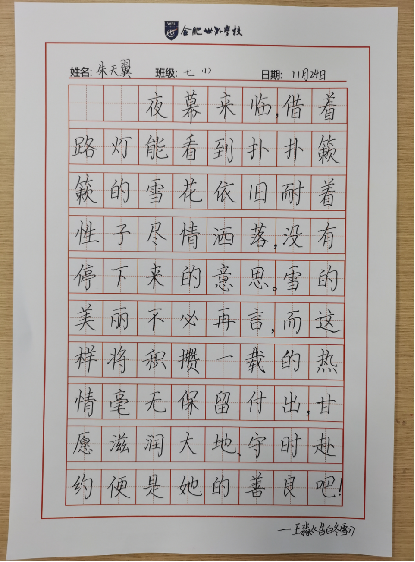 合肥世外学校
姓名: 朱天翼 班级: 七(1) 日期: 11月24日
夜幕来临,借着
路灯能看到扑扑簌
簌的雪花依旧耐着
性子尽情洒落,没有
停下来的意思。雪的
美丽不必再言,而这
样将积攒一载的热
情毫无保留付出,甘
愿滋润大地、守时赴
约便是她的善良吧!